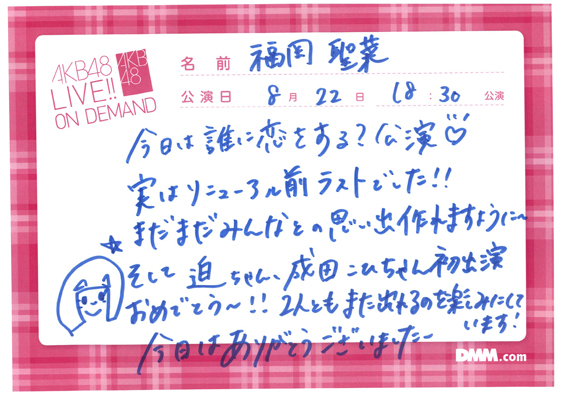 AKB48
LIVE!!
ON DEMAND
AKB
48
名前 福岡 聖菜
公演日 8月 22日 18:30 公演
今日は誰に恋をする?公演♡
実はリニューアル前ラストでした!!
まだまだみんなとの思い出作れますように〜
☆そして 迫ちゃん、成田こひちゃん初出演
おめでとう〜!! 2人ともまた出れるのを楽しみにして
います!
今日はありがとうございました〜
DMM.com